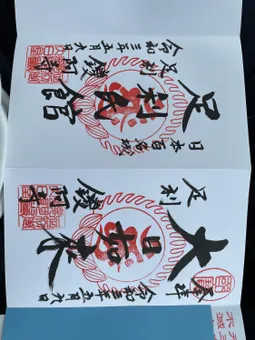 奉拝 令和三年五月九日
大日如来
足利 鑁阿寺
日本百名城
足利氏館
足利 鑁阿寺
令和三年五月九日